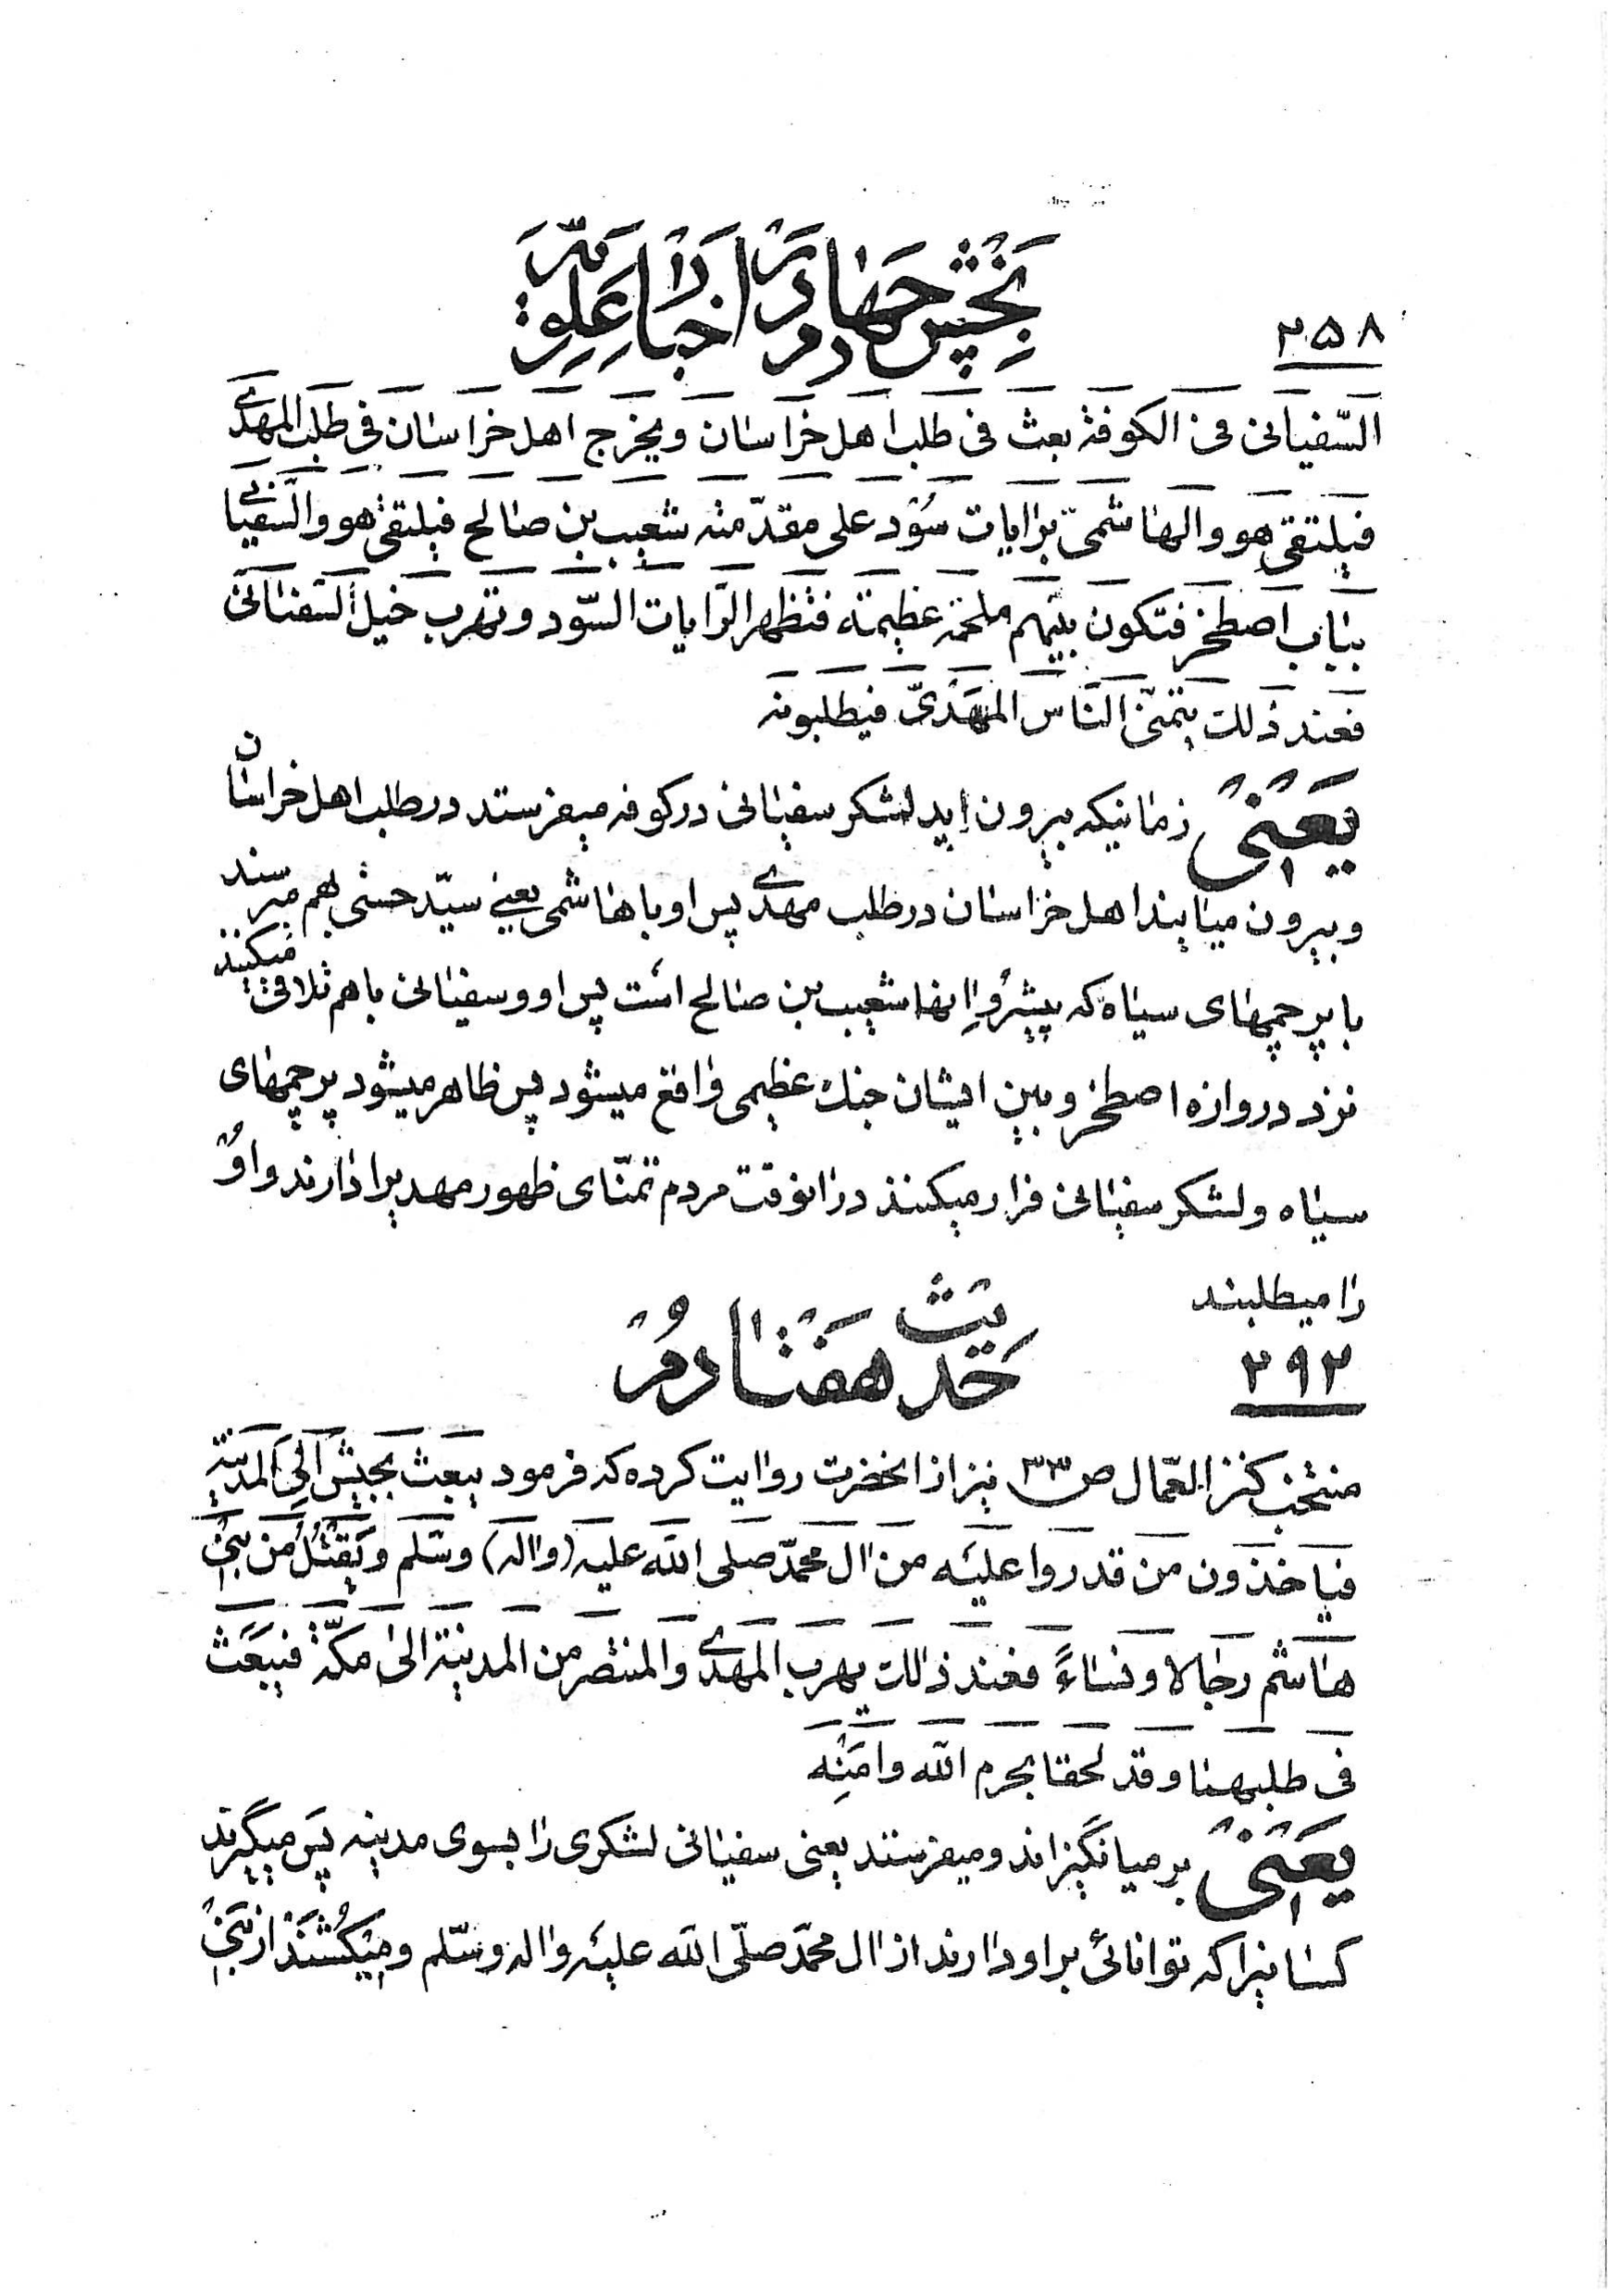 ۲۵۸
بخش چهارم در اخبار علویّه
السّفیانی فی الکوفة بعث فی طلب اهل خراسان ویخرج اهل خراسان فی طلب المهدی
فیلتقی هو والهاشمیّ برایات سُود علی مقدّمته شعیب بن صالح فیلتقی هو والسّفیانی
بباب اصطخر فتکون بینهم ملحمة عظیمة فتظهر الرّایات السّود وتهرب خیل السّفیانی
فعند ذلک یتمنّی النّاس المهدیّ فیطلبونه
یَعنی زمانیکه بیرون اید لشکر سفیانی در کوفه میفرستد در طلب اهل خراسان
و بیرون میایند اهل خراسان در طلب مهدی پس او با هاشمی یعنی سیّد حسنی بهم میرسند
با پرچمهای سیاه که پیشرو انها شعیب بن صالح است پس او و سفیانی باهم تلاقی میکنند
نزد دروازه اصطخر و بین ایشان جنک عظیمی واقع میشود پس ظاهر میشود پرچمهای
سیاه و لشکر سفیانی فرار میکنند در انوقت مردم تمنّای ظهور مهدیرا دارند و او
را میطلبند
۲۹۲
حدیث هفتاد و دوم
منتخب کنز العمّال ص۳۳ نیز از انحضرت روایت کرده که فرمود یبعث بجیش الی المدینة
فیاخذون من قدروا علیه من ال محمّد صلی الله علیه (واله) وسلم ویقتل من بنی
هاشم رجالا ونساءً فعند ذلک یهرب المهدی والمنتصر من المدینة الی مکّة فیبعث
فی طلبهما وقد لحقا بحرم الله وامنه
یَعنی بر میانگیزاند و میفرستد یعنی سفیانی لشکری را بسوی مدینه پس میگیرند
کسانیرا که توانائی بر او دارند از ال محمّد صلّی الله علیه واله وسلّم و میکشند از بنی